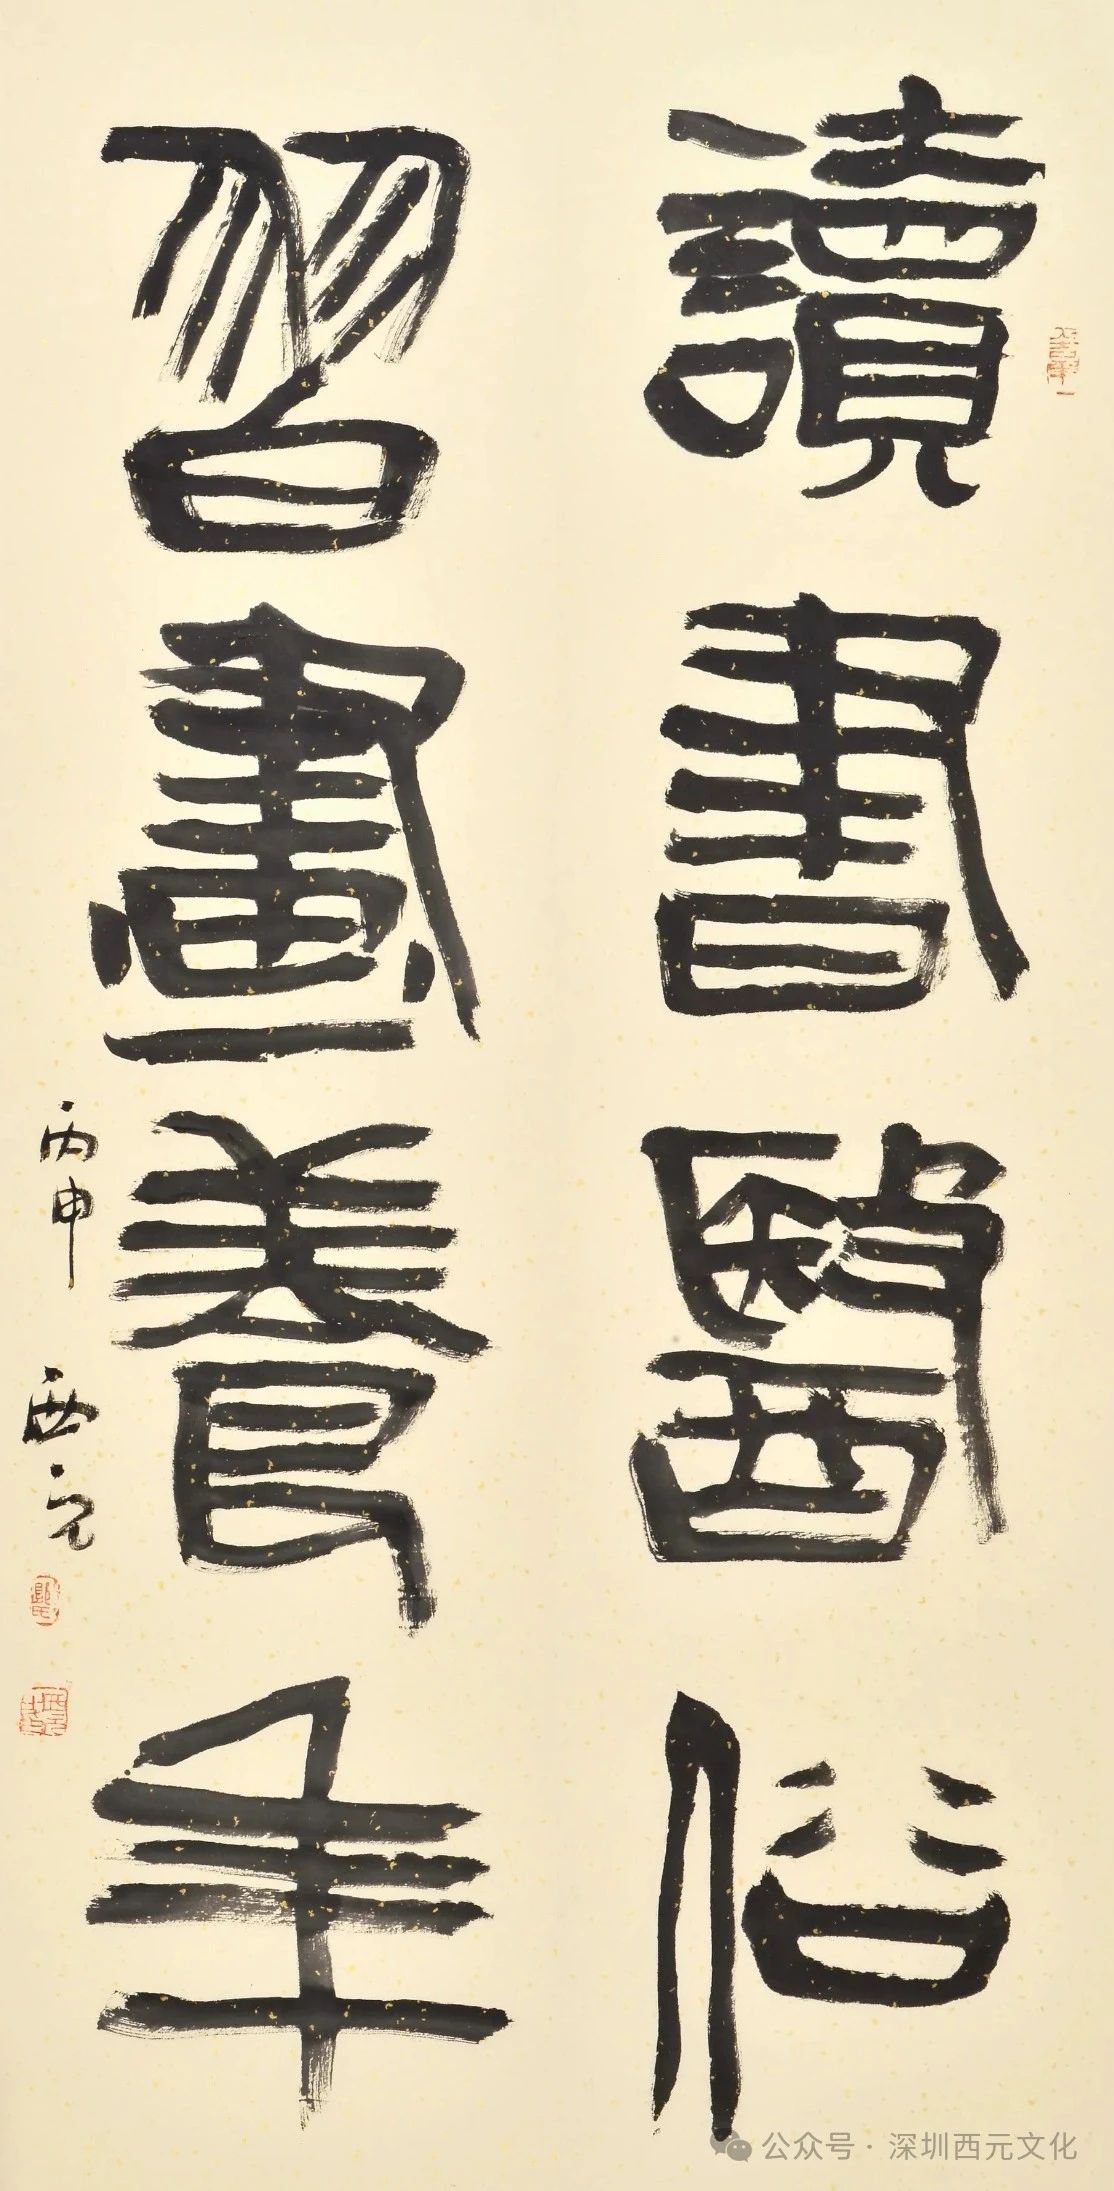 讀書醫俗
習畫養年
丙申 西元
公众号·深圳西元文化